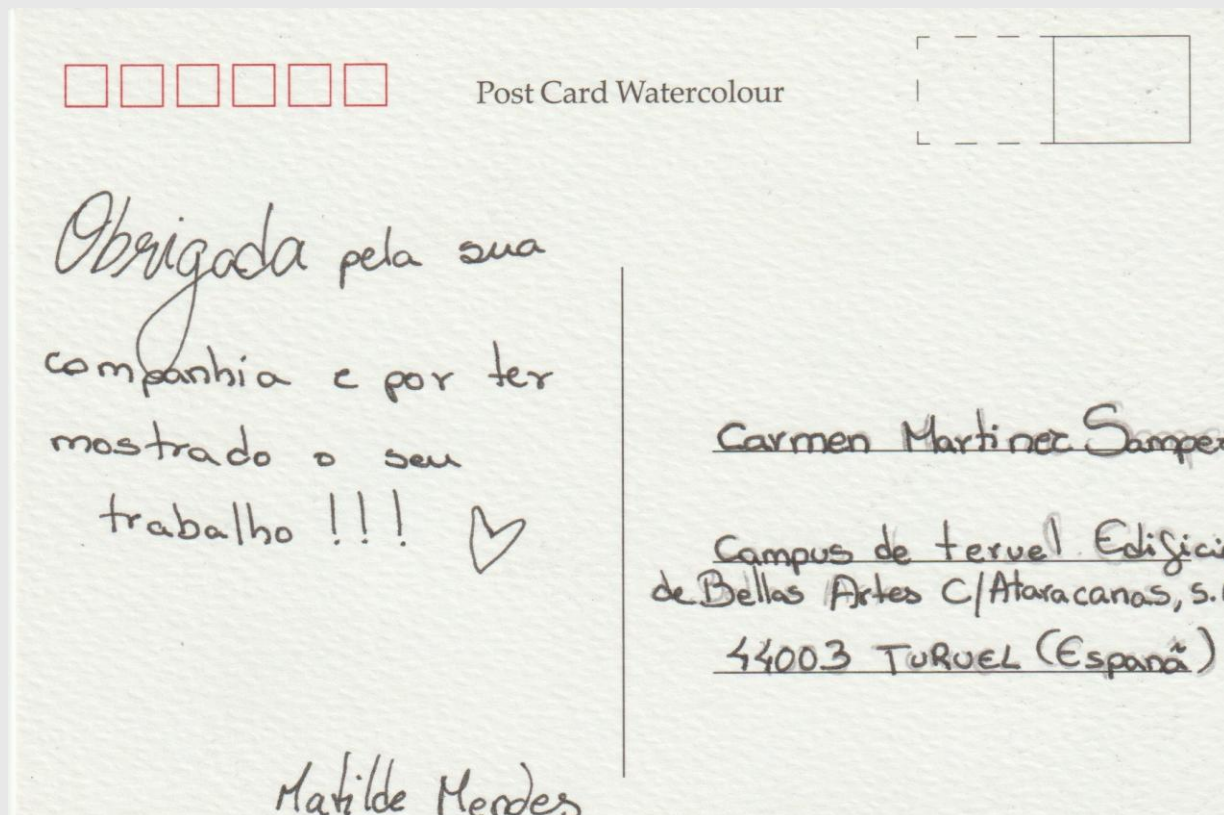 Post Card Watercolour
Obrigada pela sua
companhia e por ter
mostrado o seu
trabalho !!!
Matilde Mendes
Carmen Martinez Samper
Campus de teruel Edificio
de Bellas Artes C/Ataracanas, s.
44003 TURUEL (Espanã)